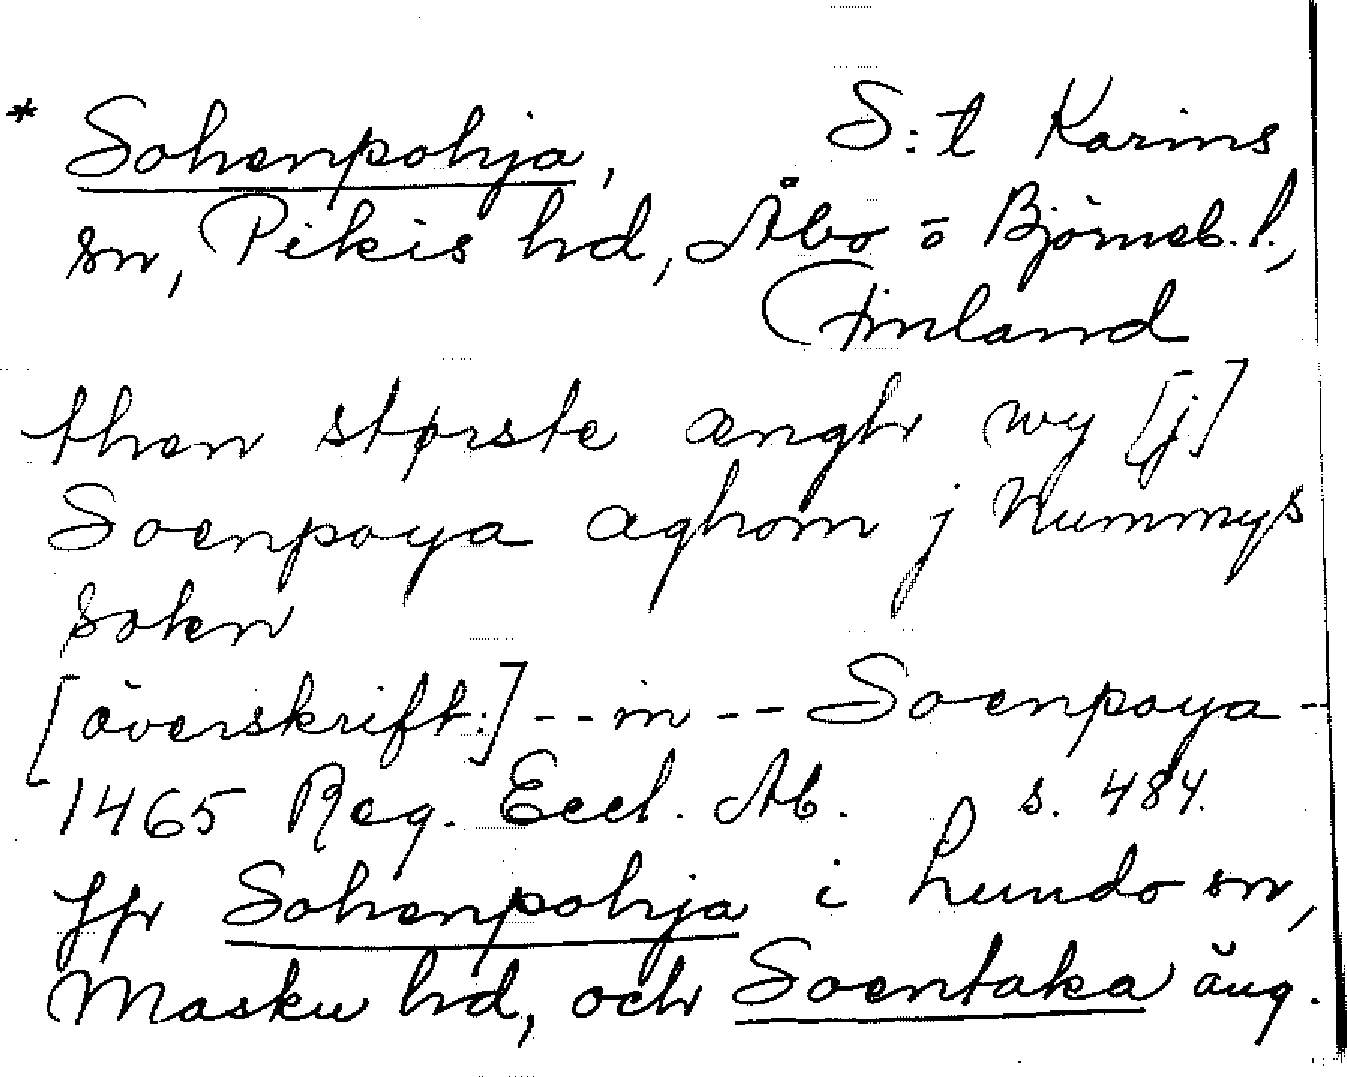 * Sohenpohja, S:t Karins
sn, Pikis hd, Åbo o Björneb. l.,
Finland
then største ængh wy [j]
Soenpoya aghom j Nummys
sokn
[överskrift:] -- in -- Soenpoya --
1465 Reg. Eccl. Ab. s. 484.
Jfr Sohenpohja i Lundo sn,
Masku hd, och Soentaka äng.